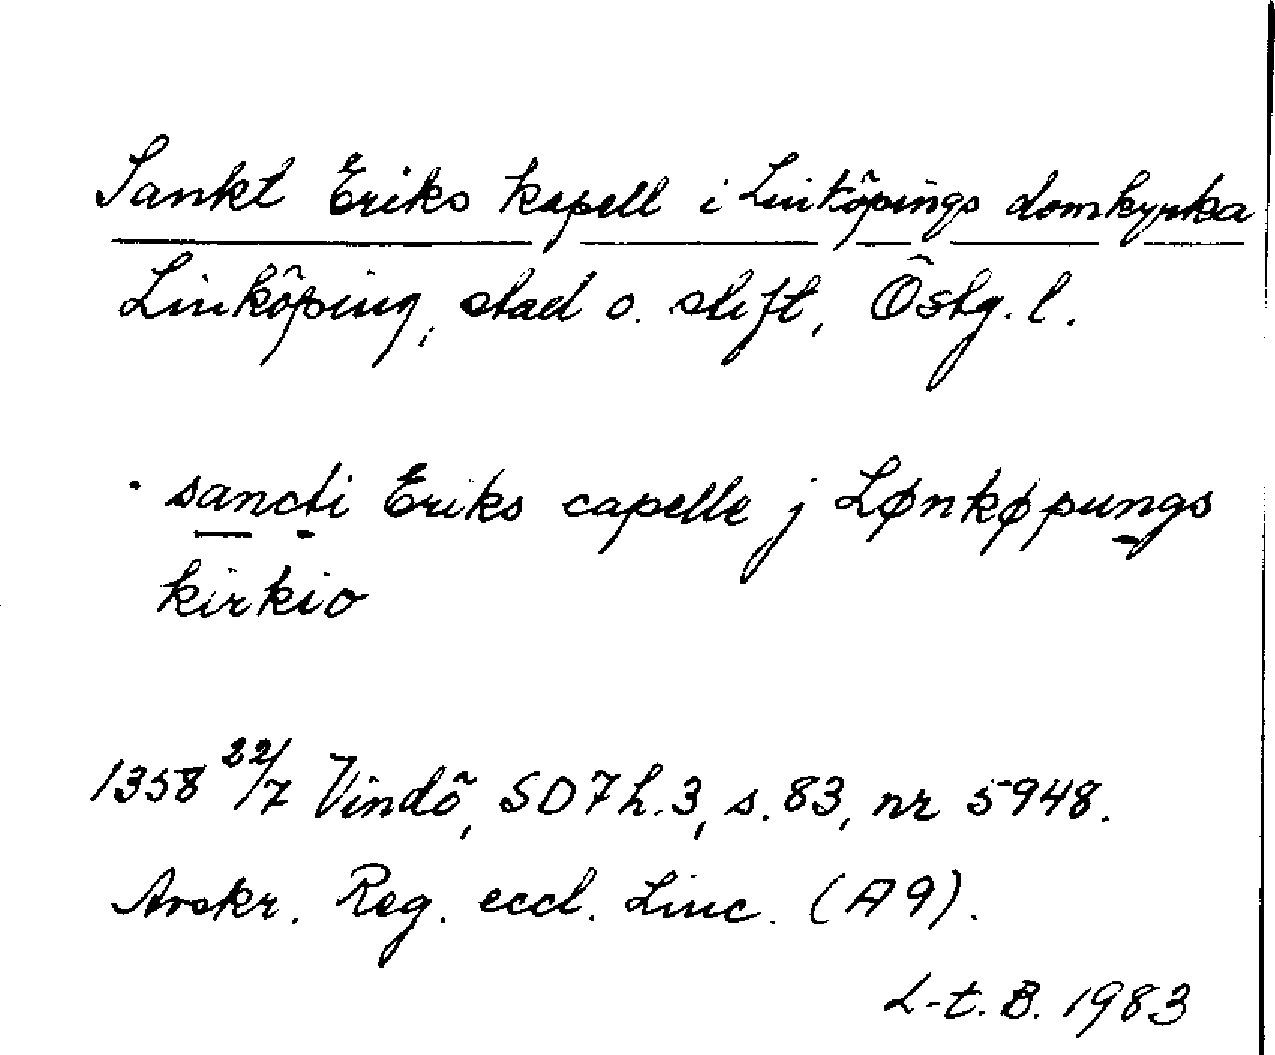 Sankt Eriks kapell i Linköpings domkyrka
Linköping, stad o. stift, Östg. l.
· sancti Eriks capelle j Lønkøpungs
kirkio
1358 22/7 Vindö, SD7h.3, s. 83, nr 5948.
Avskr. Reg. eccl. Linc. (A9).
L-t. B. 1983